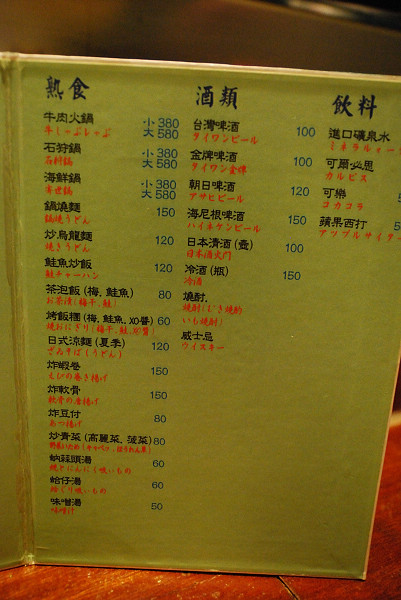 熟食
牛肉火鍋 小 380
牛しゃぶしゃぶ 大 580
石狩鍋 小 380
石狩鍋 大 580
海鮮鍋 小 380
寄せ鍋 大 580
鍋燒麵 150
鍋焼うどん
炒烏龍麵 120
焼きうどん
鮭魚炒飯 120
鮭チャーハン
茶泡飯 (梅, 鮭魚) 80
お茶漬 (梅干, 鮭)
烤飯糰 (梅, 鮭魚, XO醬) 60
焼おにぎり (梅干, 鮭, XO醬)
日式涼麵 (夏季) 120
ざるそば (うどん)
炸蝦卷 150
えびの巻き揚げ
炸軟骨 150
軟骨の唐揚げ
炸豆付 80
あつ揚げ
炒青菜 (高麗菜, 菠菜) 80
蒜頭湯 60
焼きにんにく吸いもの
蛤仔湯 60
蛤ぐり吸いもの
味噌湯 50
味噌汁
酒類
台灣啤酒 100
タイワンビール
金牌啤酒 100
タイワン金牌
朝日啤酒 120
アサヒビール
海尼根啤酒 150
ハイネケンビール
日本清酒 (壺) 100
冷酒 (瓶) 150
冷酒
燒酌.
焼酎 (むぎ焼酌
いも焼酎)
威士忌
ウイスキー
飲料
進口礦泉水
ミネラルウォーター
可爾必思
カルピス
可樂
コカコラ
蘋果西打
アップルサイダー